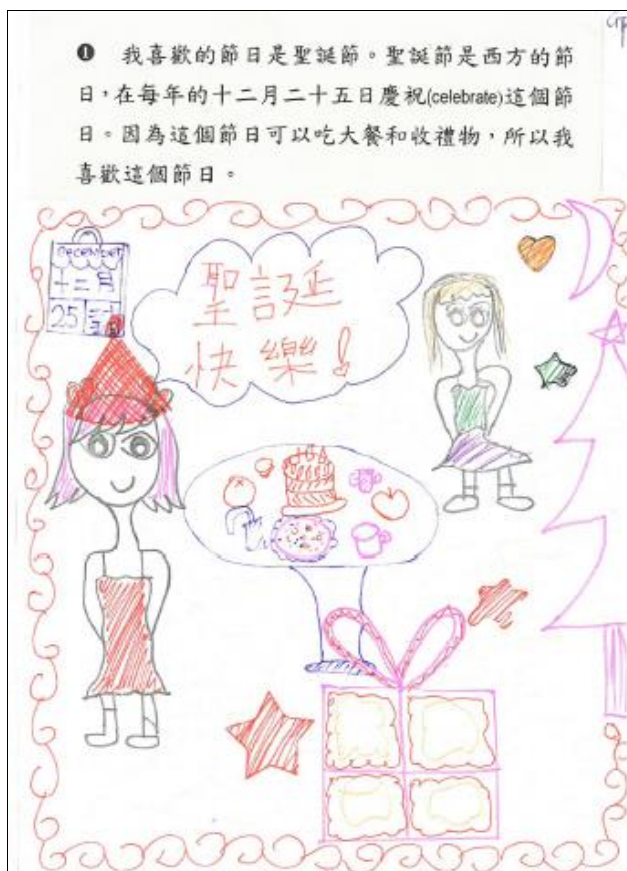 ❶ 我喜歡的節日是聖誕節。聖誕節是西方的節
日，在每年的十二月二十五日慶祝(celebrate)這個節
日。因為這個節日可以吃大餐和收禮物，所以我
喜歡這個節日。
December
十二月
25
聖誕
快樂！